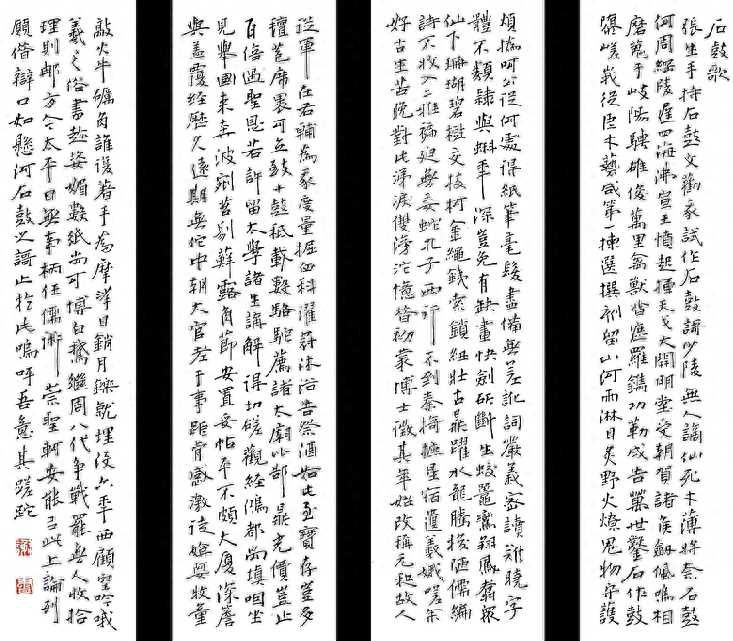 石鼓歌
張生手持石鼓文勸我試作石鼓謌少陵無人謫仙死才薄將奈石鼓
何周綱陵遲四海沸宣王憤起揮天戈大開明堂受朝賀諸侯劍佩鳴相
磨蒐于岐陽騁雄俊萬里禽獸皆遮羅鐫功勒成告萬世鑿石作鼓
隳嵯峨從臣才藝咸第一揀選撰刻留山阿雨淋日炙野火燎鬼物守護
煩撝呵公從何處得紙筆毫髮盡備無差訛詞嚴義密讀難曉字
體不類隸與蝌年深豈免有缺畫快劍斫斷生蛟鼉鸞翔鳳翥眾
仙下珊瑚碧樹交枝柯金繩鐵索鎖紐壯古鼎躍水龍騰梭陋儒編
詩不收入二雅褊迫無委蛇孔子西行不到秦掎摭星宿遺羲娥嗟余
好古生苦晚對此涕淚雙滂沱憶昔初蒙博士徵其年始改稱元和故人
從軍在右輔為我度量掘臼科濯冠沐浴告祭酒如此至寶存豈多
氈苞席裹可立致十鼓祇載數駱駝薦諸太廟比郜鼎光價豈止
百倍過聖恩若許留太學諸生講解得切磋觀經鴻都尚填咽坐
見舉國來奔波剜苔剔蘚露角節安置妥帖平不頗大廈深簷
與蓋覆經歷久遠期無佗中朝大官老于事詎肯感激徒媕婀收童
敲火牛礪角誰復著手為摩挲日銷月鑠就埋沒六年西顧空吟哦
羲之俗書趁姿媚數紙尚可博白鵝繼周八代爭戰罷無人收拾
理則那方今太平日無事柄任儒術崇聖軻安能以此上論列
願借辯口如懸河石鼓之謌止於此嗚呼吾意其蹉跎